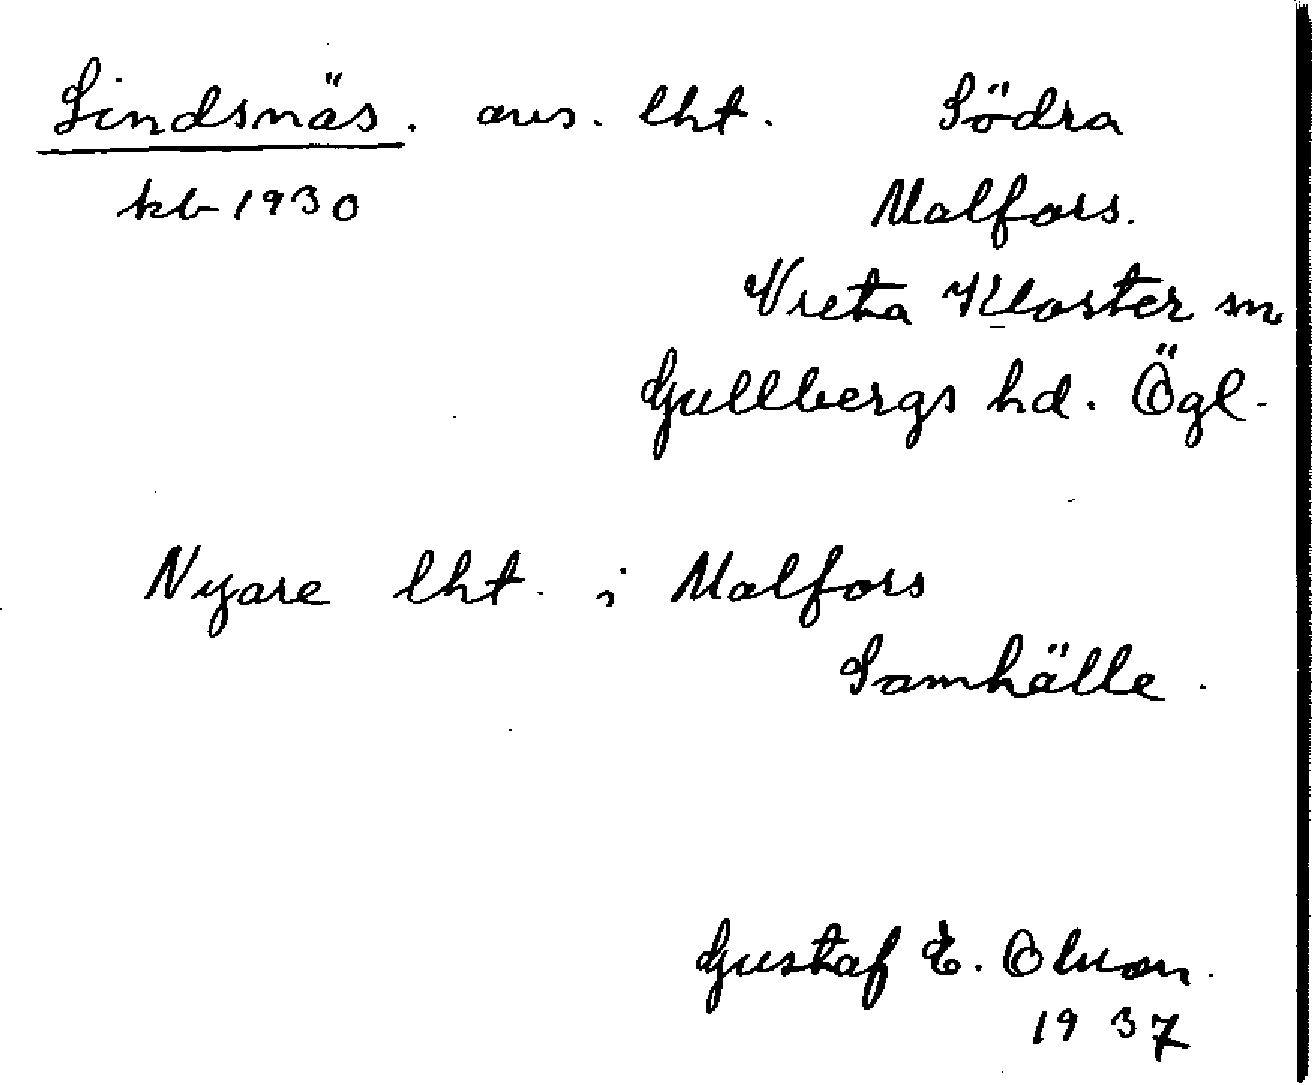 Lindsnäs. avs. lht. Södra
kb 1930 Malfors.
Vreta Kloster sn
Gullbergs hd. Ögl.
Nyare lht. i Malfors
Samhälle.
Gustaf E. Olsson.
1937